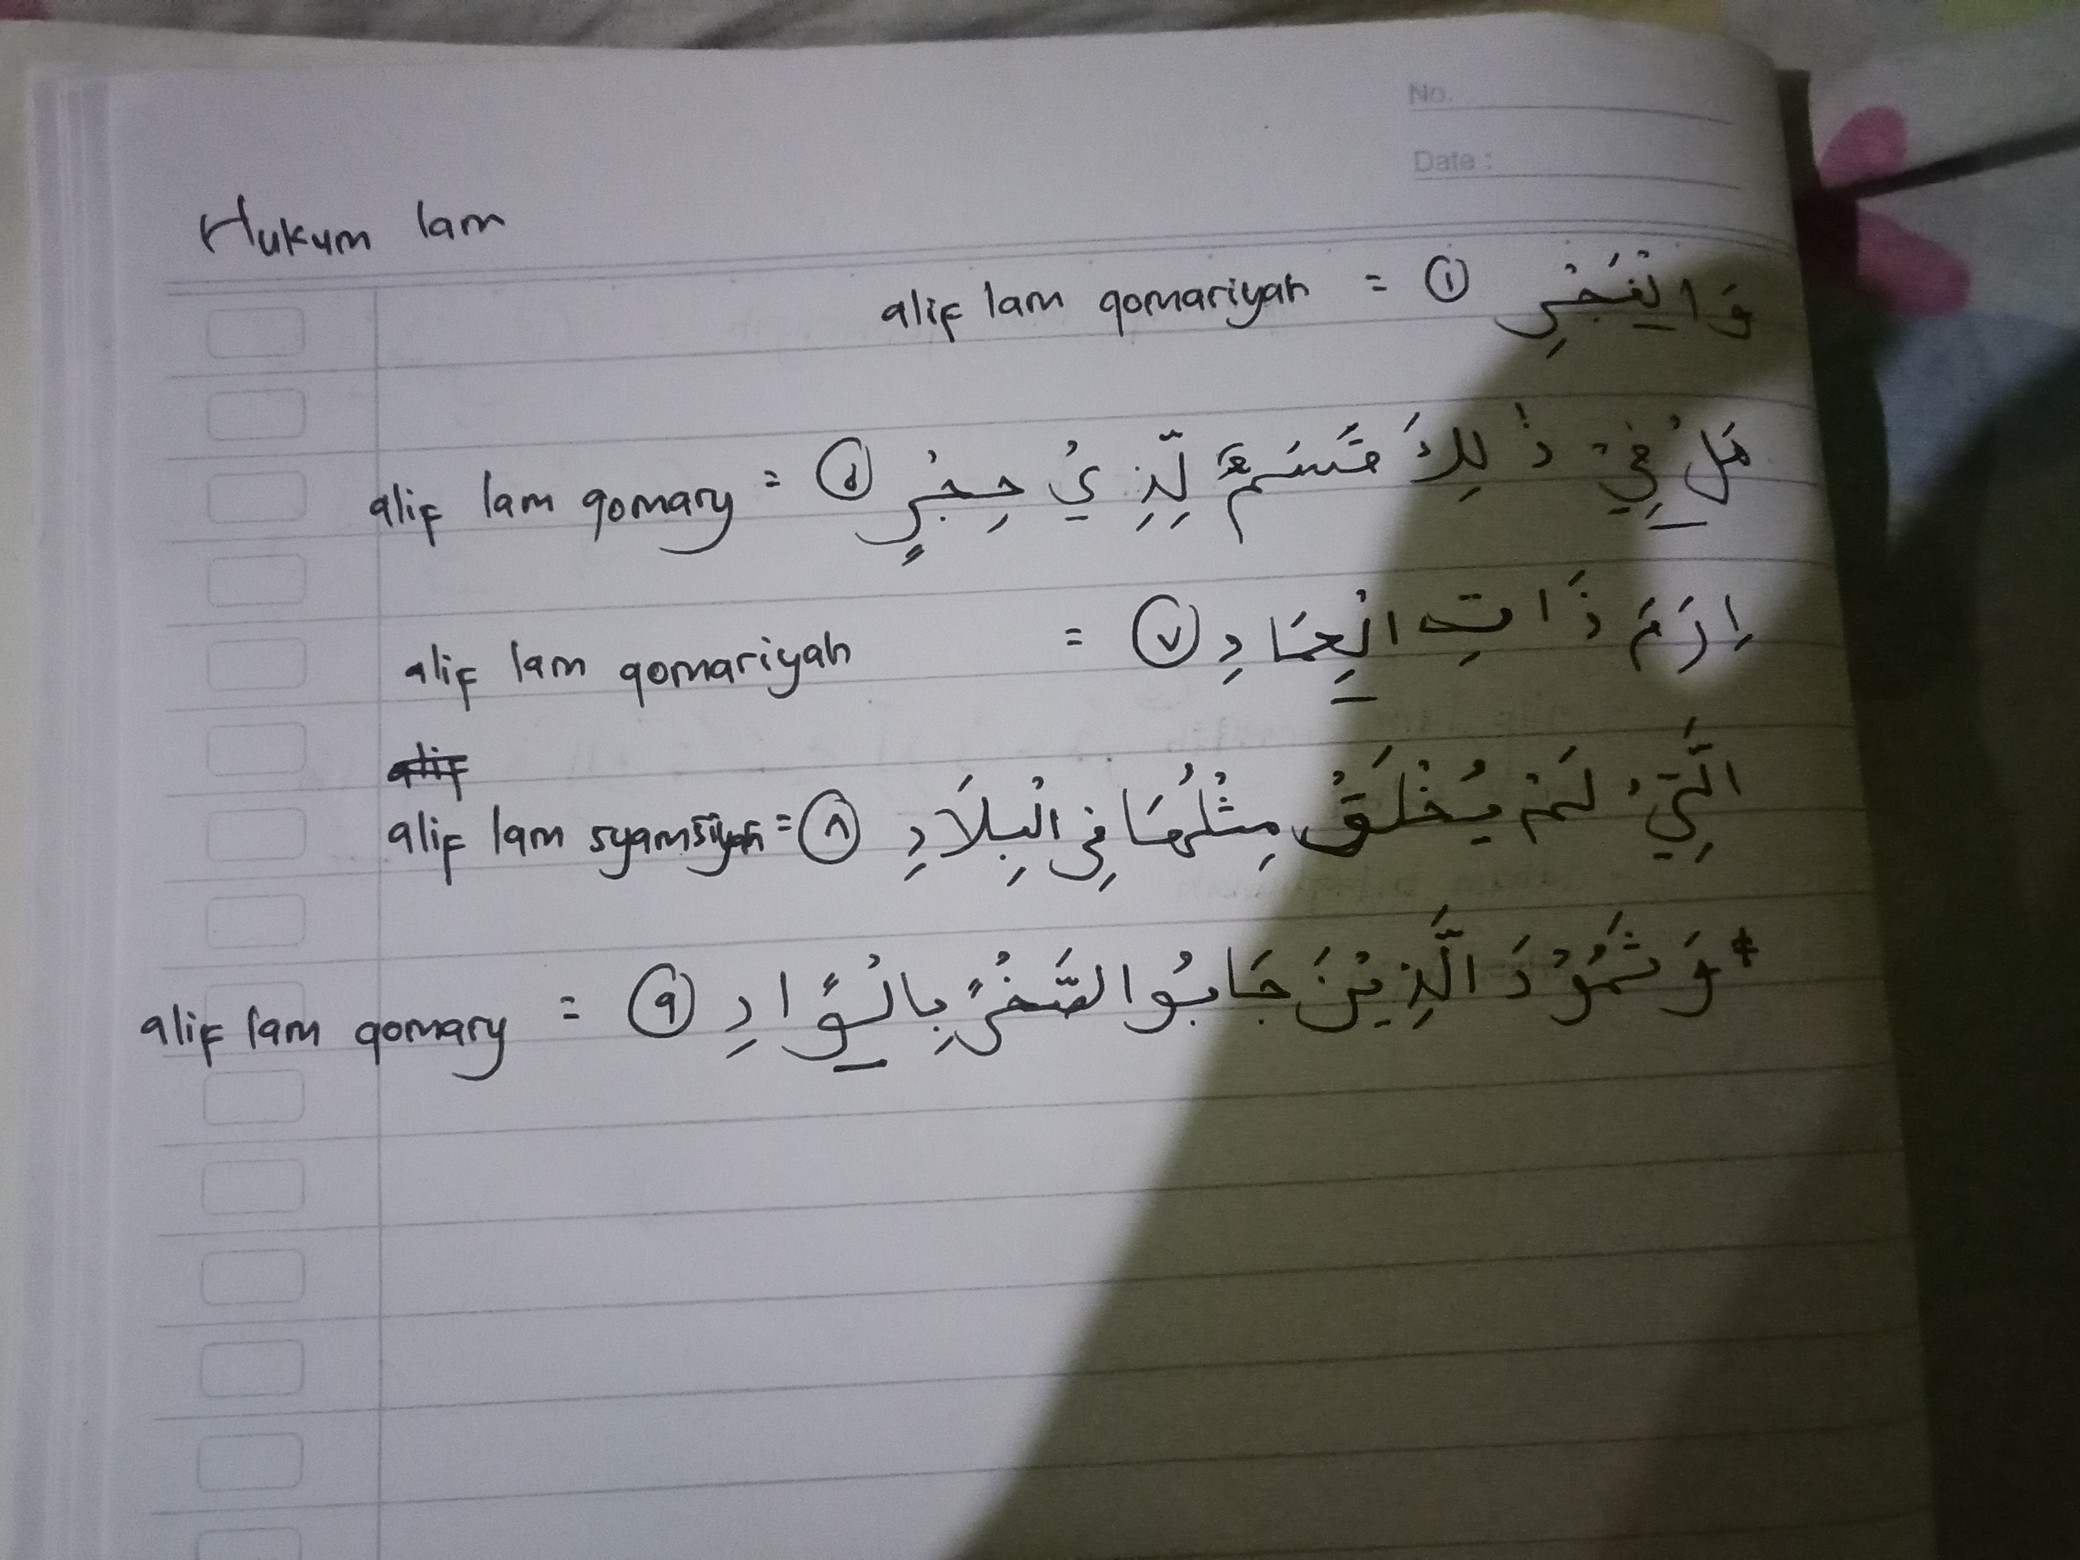 No.
Date :
Hukum lam
وَالْفَجْرِ ① = alif lam qomariyah
هَلْ فِيْ ذٰلِكَ قَسَمٌ لِّذِيْ حِجْرٍ ۝٥ = alif lam qomary
اِرَمَ ذَاتِ الْعِمَادِ ۝٧ = alif lam qomariyah
alif
الَّتِيْ لَمْ يُخْلَقْ مِثْلُهَا فِى الْبِلَادِ ۝٨ = alif lam syamsiyah
*وَثَمُوْدَ الَّذِيْنَ جَابُوا الصَّخْرَ بِالْوَادِ ۝٩ = alif lam qomary